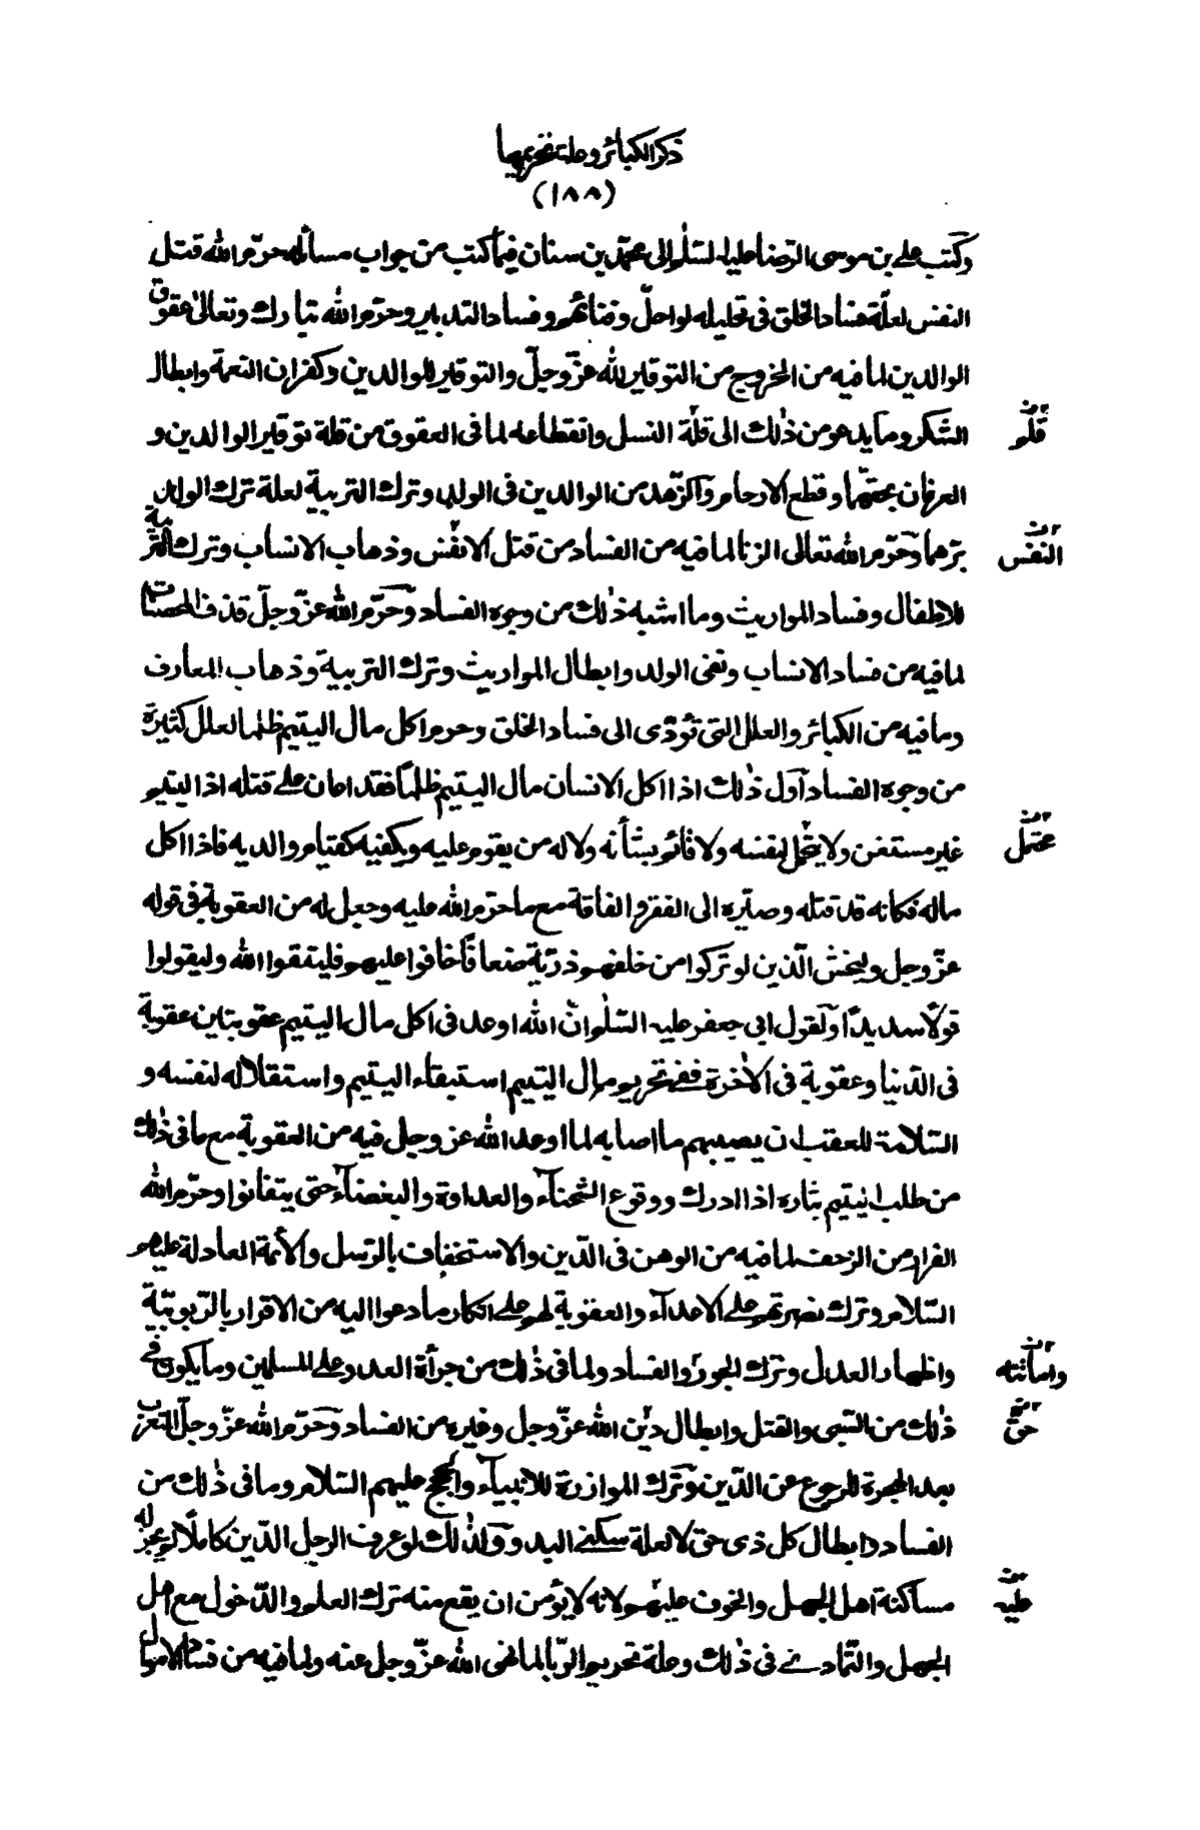 ذكر الكبائر وعلة تحريمها
(١٨٨)
وكتب علي بن موسى الرضا عليه السلام إلى محمد بن سنان فيما كتب من جواب مسائله حرّم الله قتل
النفس لعلّة فساد الخلق في تحليله لو احلّ وفنائهم وفساد التدبير وحرّم الله تبارك وتعالى عقوق
الوالدين لما فيه من الخروج من التوقير لله عزّ وجلّ والتوقير للوالدين وكفران النعمة وابطال
الشكر وما يدعو من ذلك الى قلّة النسل وانقطاعه لما في العقوق من قلة توقير الوالدين و
العرفان بحقهما وقطع الارحام والزهد من الوالدين في الولد وترك التربية لعلة ترك الولد
برّهما وحرّم الله تعالى الزنا لما فيه من الفساد من قتل الانفس وذهاب الانساب وترك التربية
للاطفال وفساد المواريث وما اشبه ذلك من وجوه الفساد وحرّم الله عزّ وجلّ قذف المحصنات
لما فيه من فساد الانساب ونفى الولد وابطال المواريث وترك التربية وذهاب المعارف
وما فيه من الكبائر والعلل التي تؤدّى الى فساد الخلق وحرم اكل مال اليتيم ظلما لعلل كثيرة
من وجوه الفساد اول ذلك اذا اكل الانسان مال اليتيم ظلمًا فقد اعان على قتله اذ اليتيم
غير مستغن ولا يتحمل لنفسه ولا قائم بشأنه ولا له من يقوم عليه ويكفيه كقيام والديه فاذا اكل
ماله فكانه قد قتله وصيّره الى الفقر والفاقة مع ما حرّم الله عليه وجعل له من العقوبة في قوله
عزّ وجل وليخش الّذين لو تركوا من خلفهم ذريّة ضعافًا خافوا عليهم فليتقوا الله وليقولوا
قولًا سديدًا ولقول ابى جعفر عليه السّلام انّ الله اوعد في اكل مال اليتيم عقوبتين عقوبة
في الدّنيا وعقوبة في الآخرة ففي تحريم مال اليتيم استبقاء اليتيم واستقلاله لنفسه و
السّلامة للعقب ان يصيبهم ما اصابه لما اوعد الله عز وجل فيه من العقوبة مع ما فى ذلك
من طلب اليتيم بثاره اذا ادرك ووقوع الشحناء والعداوة والبغضاء حتى يتفانوا وحرّم الله
الفرار من الزحف لما فيه من الوهن في الدّين والاستخفاف بالرّسل والأئمة العادلة عليهم
السّلام وترك نصرتهم على الاعداء والعقوبة لهم على انكار ما دعوا اليه من الاقرار بالرّبوبيّة
واظهار العدل وترك الجور والفساد ولما في ذلك من جرأة العدو على المسلمين وما يكون في
ذلك من السّبى والقتل وابطال دين الله عزّ وجل وغيره من الفساد وحرّم الله عزّ وجلّ التعرّب
بعد الهجرة للرجوع عن الدّين وترك الموازرة للانبياء والحجج عليهم السّلام وما في ذلك من
الفساد وابطال كل ذى حق لا لعلة سكنى البدو ولذلك لو عرف الرجل الدّين كاملًا لم يجز له
مساكنة اهل الجهل والخوف عليهم لانه لا يؤمن ان يقع منه ترك العلم والدّخول مع اهل
الجهل والتّمادى في ذلك وعلة تحريم الرّبا لما نهى الله عزّ وجل عنه ولما فيه من فساد الاموال
قلّه
النفس
محتمل
واماتته
حق
عليه